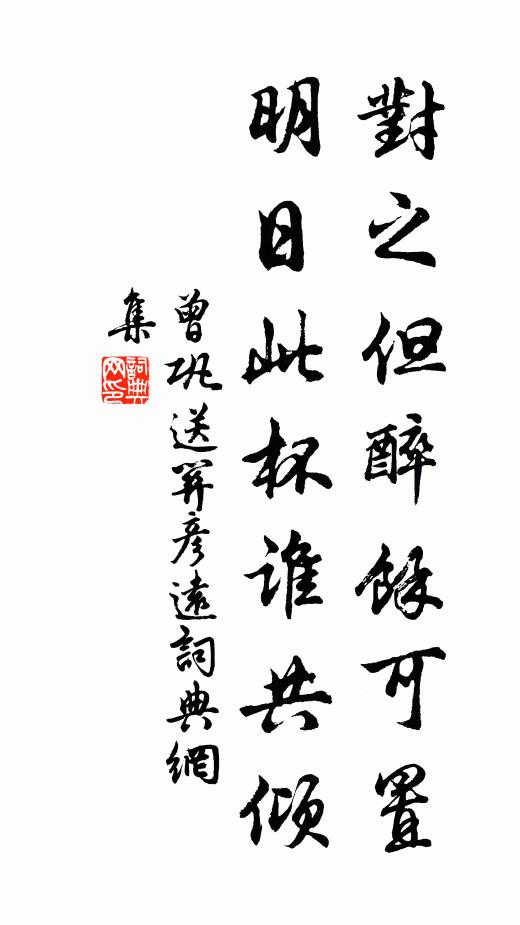 對之但醉餘可置
明日此杯誰共傾
曾巩送羿彥遠詞典網
集
詞典
网印